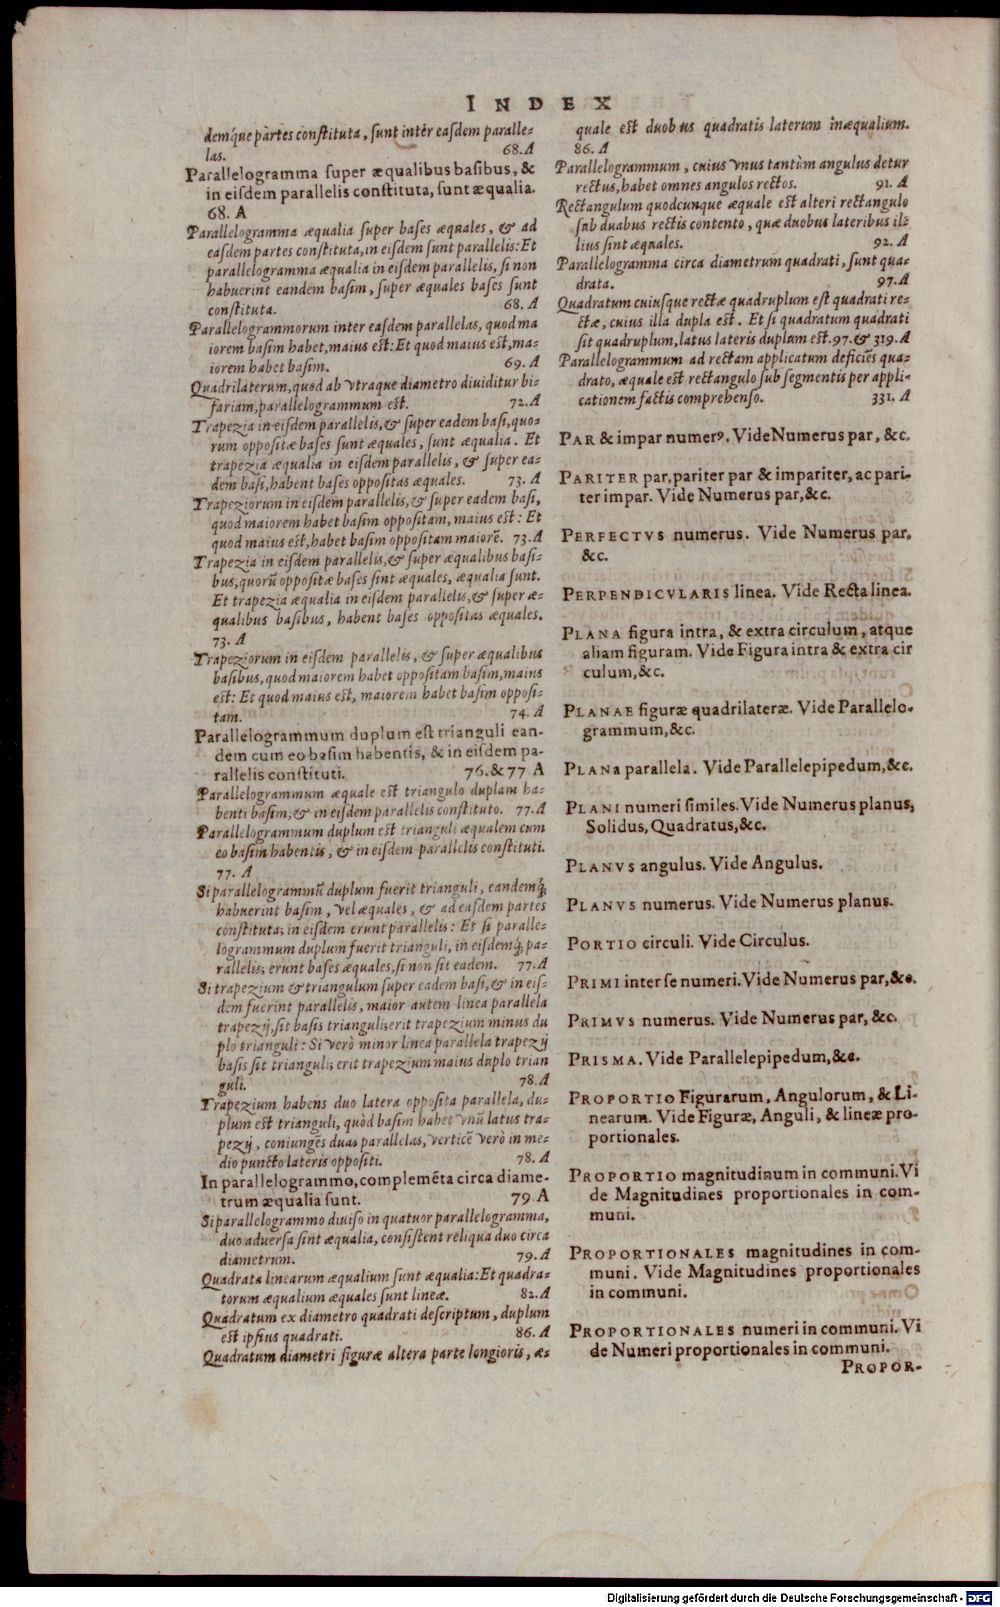 INDEX
demq́ue partes constituta, sunt inter easdem paralle-
las. 68. A
Parallelogramma super æqualibus basibus, &
in eisdem parallelis constituta, sunt æqualia.
68. A
Parallelogramma æqualia super bases æquales, & ad
easdem partes constituta, in eisdem sunt parallelis: Et
parallelogramma æqualia in eisdem parallelis, si non
habuerint eandem basim, super æquales bases sunt
constituta. 68. A
Parallelogrammorum inter easdem parallelas, quod ma
iorem basim habet, maius est: Et quod maius est, ma-
iorem habet basim. 69. A
Quadrilaterum, quod ab vtraque diametro diuiditur bi-
fariam, parallelogrammum est. 72. A
Trapezia in eisdem parallelis, & super eadem basi, quo-
rum oppositæ bases sunt æquales, sunt æqualia. Et
trapezia æqualia in eisdem parallelis, & super ea-
dem basi, habent bases oppositas æquales. 73. A
Trapeziorum in eisdem parallelis, & super eadem basi,
quod maiorem habet basim oppositam, maius est: Et
quod maius est, habet basim oppositam maiorẽ. 73. A
Trapezia in eisdem parallelis, & super æqualibus basi-
bus, quorũ oppositæ bases sint æquales, æqualia sunt.
Et trapezia æqualia in eisdem parallelis, & super æ-
qualibus basibus, habent bases oppositas æquales.
73. A
Trapeziorum in eisdem parallelis, & super æqualibus
basibus, quod maiorem habet oppositam basim, maius
est: Et quod maius est, maiorem habet basim opposi-
tam. 74. A
Parallelogrammum duplum est trianguli ean-
dem cum eo basim habentis, & in eisdem pa-
rallelis constituti. 76. & 77 A
Parallelogrammum æquale est triangulo duplam ha-
benti basim, & in eisdem parallelis constituto. 77. A
Parallelogrammum duplum est trianguli æqualem cum
eo basim habentis, & in eisdem parallelis constituti.
77. A
Si parallelogrammũ duplum fuerit trianguli, eandemq́;
habuerint basim, vel æquales, & ad easdem partes
constituta; in eisdem erunt parallelis: Et si paralle-
logrammum duplum fuerit trianguli, in eisdemq́; pa-
rallelis; erunt bases æquales, si non sit eadem. 77. A
Si trapezium & triangulum super eadem basi, & in eis-
dem fuerint parallelis, maior autem linea parallela
trapezij, sit basis trianguli; erit trapezium minus du
plo trianguli: Si verò minor linea parallela trapezij
basis sit trianguli; erit trapezium maius duplo trian
guli. 78. A
Trapezium habens duo latera opposita parallela, du-
plum est trianguli, quòd basim habet vnũ latus tra-
pezij, coniungẽs duas parallelas, verticẽ verò in me-
dio puncto lateris oppositi. 78. A
In parallelogrammo, complemẽta circa diame-
trum æqualia sunt. 79 A
Si parallelogrammo diuiso in quatuor parallelogramma,
duo aduersa sint æqualia, consistent reliqua duo circa
diametrum. 79. A
Quadrata linearum æqualium sunt æqualia: Et quadra-
torum æqualium æquales sunt lineæ. 82. A
Quadratum ex diametro quadrati descriptum, duplum
est ipsius quadrati. 86. A
Quadratum diametri figuræ altera parte longioris, æ-
quale est duobus quadratis laterum inæqualium.
86. A
Parallelogrammum, cuius vnus tantùm angulus detur
rectus, habet omnes angulos rectos. 91. A
Rectangulum quodcunque æquale est alteri rectangulo
sub duabus rectis contento, quæ duobus lateribus il-
lius sint æquales. 92. A
Parallelogramma circa diametrum quadrati, sunt qua-
drata. 97. A
Quadratum cuiusque rectæ quadruplum est quadrati re-
ctæ, cuius illa dupla est. Et si quadratum quadrati
sit quadruplum, latus lateris duplum est. 97. & 319. A
Parallelogrammum ad rectam applicatum deficiẽs qua-
drato, æquale est rectangulo sub segmentis per appli-
cationem factis comprehenso. 331. A
PAR & impar numerꝰ. Vide Numerus par, &c.
PARITER par, pariter par & impariter, ac pari-
ter impar. Vide Numerus par, &c.
PERFECTVS numerus. Vide Numerus par,
&c.
PERPENDICVLARIS linea. Vide Recta linea.
PLANA figura intra, & extra circulum, atque
aliam figuram. Vide Figura intra & extra cir
culum, &c.
PLANAE figuræ quadrilateræ. Vide Parallelo-
grammum, &c.
PLANA parallela. Vide Parallelepipedum, &c.
PLANI numeri similes. Vide Numerus planus,
Solidus, Quadratus, &c.
PLANVS angulus. Vide Angulus.
PLANVS numerus. Vide Numerus planus.
PORTIO circuli. Vide Circulus.
PRIMI inter se numeri. Vide Numerus par, &c.
PRIMVS numerus. Vide Numerus par, &c.
PRISMA. Vide Parallelepipedum, &c.
PROPORTIO Figurarum, Angulorum, & Li-
nearum. Vide Figuræ, Anguli, & lineæ pro-
portionales.
PROPORTIO magnitudinum in communi. Vi
de Magnitudines proportionales in com-
muni.
PROPORTIONALES magnitudines in com-
muni. Vide Magnitudines proportionales
in communi.
PROPORTIONALES numeri in communi. Vi
de Numeri proportionales in communi.
PROPOR-
Digitalisierung gefördert durch die Deutsche Forschungsgemeinschaft - DFG